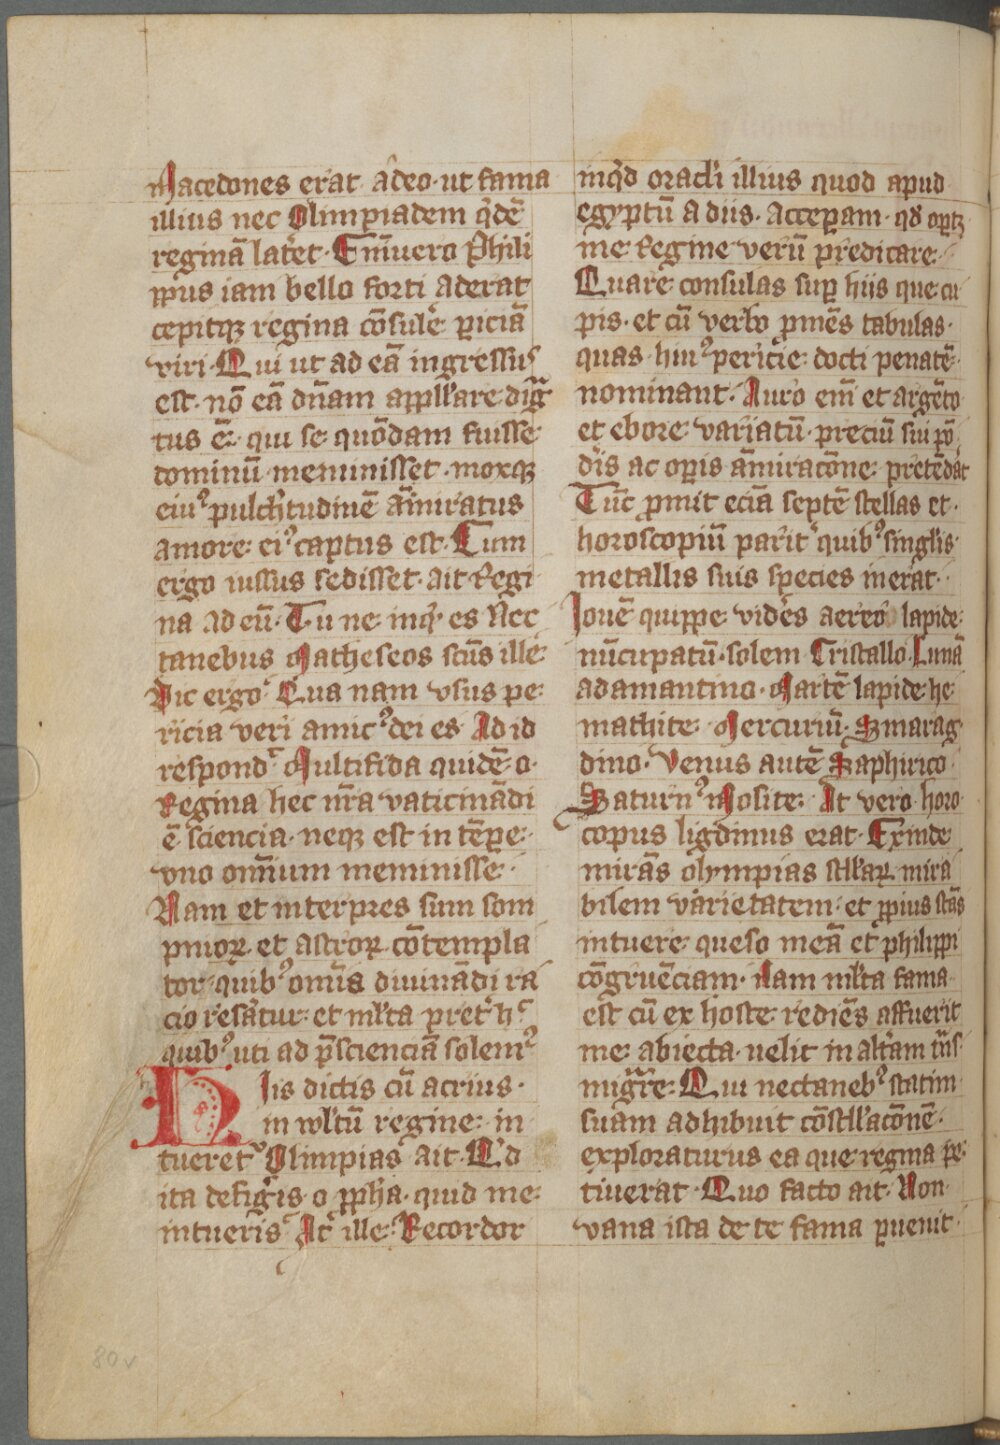 Macedones erat adeo ut fama
illius nec Olimpiadem qͥdē
reginā lateͬt. Enīuero Phili
ppus iam bello forti aderat
cepitqꝫ regina cōsuleͬ ꝑiciā
viri. Qui ut ad eā ingressus
est. nō eā dn̄am appllare dig
tus ē. qui se quōdam fuisse
dominū meminisset. moxqꝫ
eiuꝰ pulchͥtudinē am̄iratus
amore eiꝰ captus est. Cum
ergo iussus sedisset. ait Regi
na ad eū. Tu ne inqͥ es Nec
tanebus Matheseos scūs ille
Dic ergo Qua nam vsus pe
ricia veri amicꝰ dei es. Ad id
respond Multifida quidē o
Regina hec nr̄a vaticinādi
ē sciencia. neqꝫ est in tēꝑe
vno omnium meminisse.
Nam et interpres sum som
pnioꝝ et astroꝝ cōtempla
tor. quibꝰ omīa diuinādi ra
cio reſatur. et ml̄ta pret h
quibꝰ uti ad p̄scienciā solemꝰ
His dictis cū acrius
in wltū regine in
tueret Olimpias ait. Qͥd
ita defigͥis o ppha. quid me
intueris At ille. Recordor
inqͥd oracli illius quod apud
egyptū a diis. acceperam. qd oportꝫ
me Regine verū predicare.
Quare consulas suꝑ hiis que cu
pis. et cū verbo ꝓmēs tabulas
quas hiuꝰ pericie docti penatē
nominant. Auro em̄ et argēto
et ebore variatū. preciū sui pō
dīs ac oꝑis am̄iracōne pretēdāt
Tūc ꝓmit eciā septē stellas et
horoscopiū parit quibꝰ singlis
metallis suis species inerat.
Jouē quippe vides aereo lapide
nūcupatū. solem Cristallo. Lunā
adamantino. Martē lapide he
mathite. Mercuriū. Smarag
dino. Venus autē Saphirico
Saturnꝰ in osite. At vero horo
copus ligdinus erat. Exinde
mirās olympias stllaꝝ mira
bilem varietatem. et ꝓpius stās
intuere queso meā et philippi
cōgruēciam. Nam ml̄ta fama
est cū ex hoste rediēs affuerit
me abiecta. uelit in altam
migrͣre. Qui nectanebꝰ statim
suam adhibuit cōstllacōnē.
exploraturus ea que regina pe
tiuerat. Quo facto ait. Non
vana ista de te fama ꝑuenit.
80v